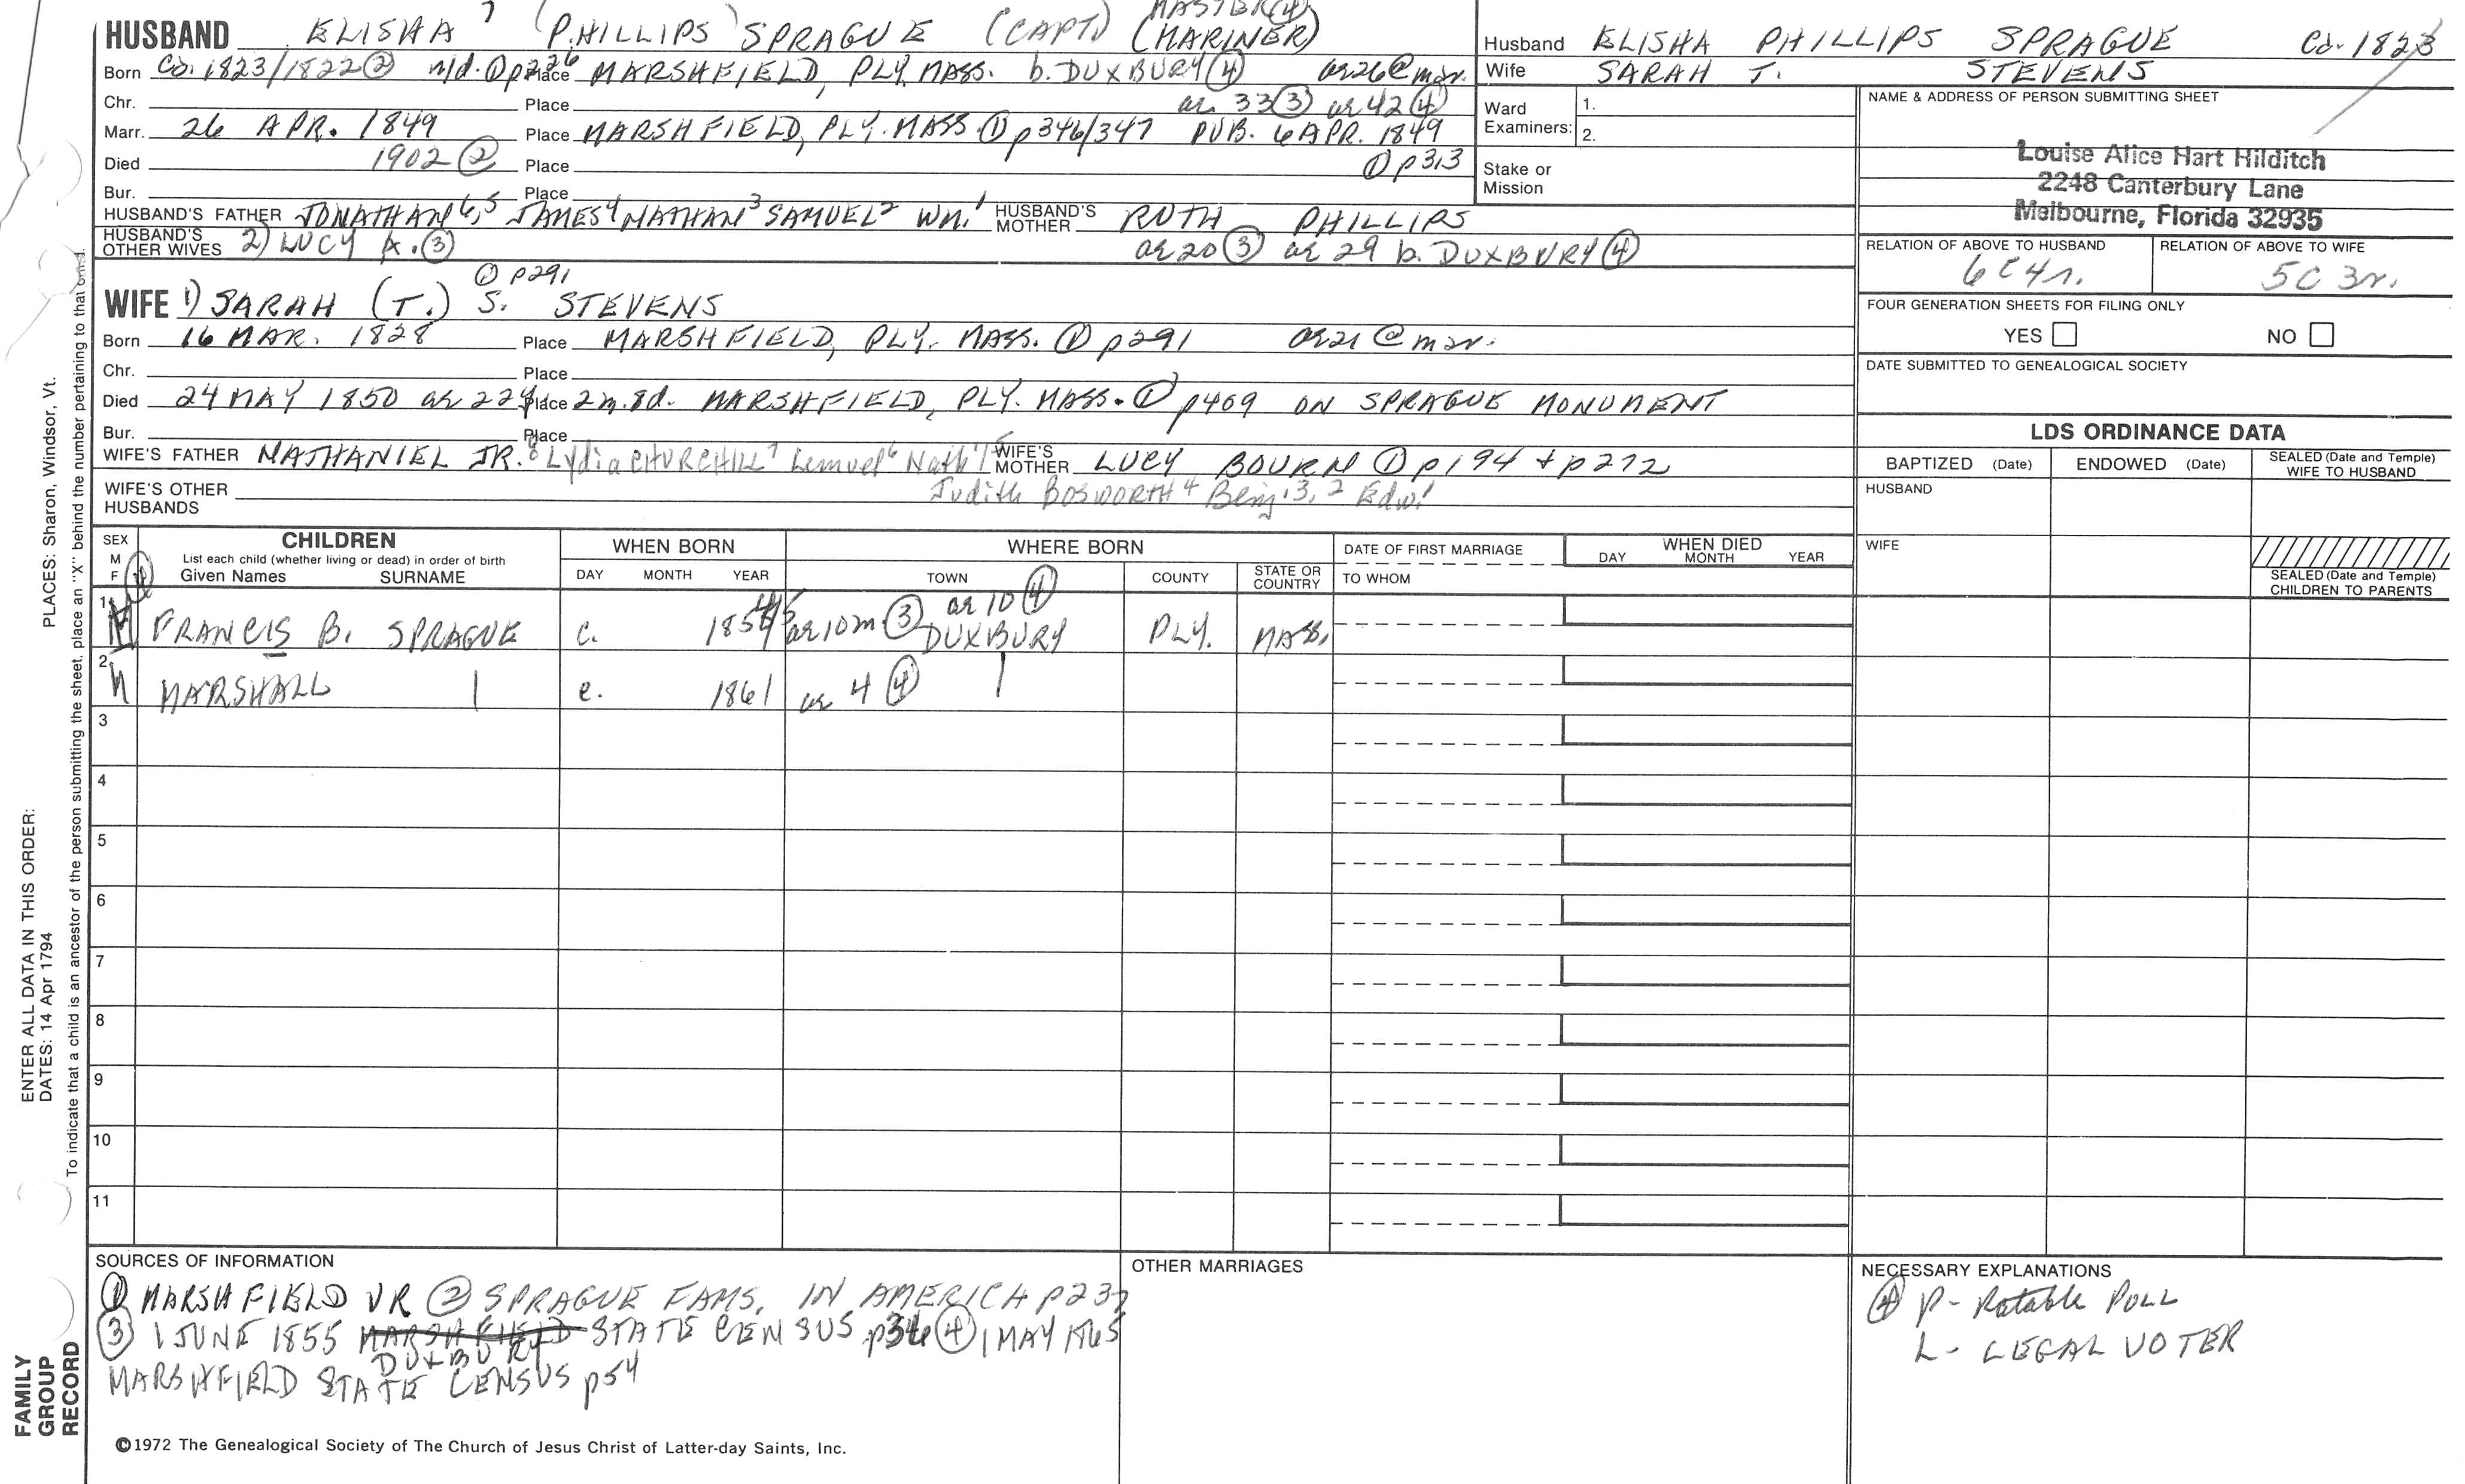 MASTER (4)
HUSBAND ELISHA 7 (PHILLIPS) SPRAGUE (CAPT) (MARINER)
Born Ca. 1823/1822 (2) n/d. (1) p226 Place MARSHFIELD, PLY. MASS. b. DUXBURY (4) ae 26 @ mar.
Chr. Place ae. 33 (3) ae 42 (4)
Marr. 26 APR. 1849 Place MARSHFIELD, PLY. MASS (1) p346/347 PUB. 6 APR. 1849
Died 1902 (2) Place (1) p313
Bur. Place
HUSBAND'S FATHER JONATHAN 6,5 JAMES 4 NATHAN 3 SAMUEL 2 WM. 1 HUSBAND'S MOTHER RUTH PHILLIPS
HUSBAND'S OTHER WIVES 2) LUCY A. (3) ae 20 (3) ae 29 b. DUXBURY (4)
(1) p291
WIFE 1) SARAH (T.) S. STEVENS
Born 16 MAR. 1828 Place MARSHFIELD, PLY. MASS. (1) p291 ae 21 @ mar.
Chr. Place
Died 24 MAY 1850 ae 22y Place 2m. 8d. MARSHFIELD, PLY. MASS. (1) p409 ON SPRAGUE MONUMENT
Bur. Place
WIFE'S FATHER NATHANIEL JR. 8 Lydia CHURCHILL 7 Lemuel 6 Nath'l 5 WIFE'S MOTHER LUCY BOURN (1) p194 + p272
WIFE'S OTHER HUSBANDS Judith BOSWORTH 4 Benj. 3, 2 Edw. 1
Husband ELISHA PHILLIPS SPRAGUE Ca. 1823
Wife SARAH T. STEVENS
Ward Examiners: 1.
2.
Stake or Mission
NAME & ADDRESS OF PERSON SUBMITTING SHEET
Louise Alice Hart Hilditch
2248 Canterbury Lane
Melbourne, Florida 32935
RELATION OF ABOVE TO HUSBAND RELATION OF ABOVE TO WIFE
6C4r. 5C 3r.
FOUR GENERATION SHEETS FOR FILING ONLY
YES NO
DATE SUBMITTED TO GENEALOGICAL SOCIETY
LDS ORDINANCE DATA
BAPTIZED (Date) ENDOWED (Date) SEALED (Date and Temple) WIFE TO HUSBAND
HUSBAND
WIFE
SEALED (Date and Temple) CHILDREN TO PARENTS
SEX M F
CHILDREN
List each child (whether living or dead) in order of birth
Given Names SURNAME
WHEN BORN
DAY MONTH YEAR
WHERE BORN
TOWN COUNTY STATE OR COUNTRY
DATE OF FIRST MARRIAGE
TO WHOM
WHEN DIED
DAY MONTH YEAR
1 M FRANCIS B. SPRAGUE c. 1854/5 ae 10m (3) ae 10 (4) DUXBURY PLY. MASS.
2 M MARSHALL | c. 1861 ae 4 (4) |
3
4
5
6
7
8
9
10
11
SOURCES OF INFORMATION
(1) MARSHFIELD VR (2) SPRAGUE FAMS. IN AMERICA p237
(3) 1 JUNE 1855 MARSHFIELD STATE CENSUS p34 (4) 1 MAY 1865
DUXBURY
MARSHFIELD STATE CENSUS p54
OTHER MARRIAGES
NECESSARY EXPLANATIONS
(4) P - Ratable POLL
L - LEGAL VOTER
©1972 The Genealogical Society of The Church of Jesus Christ of Latter-day Saints, Inc.
FAMILY GROUP RECORD
ENTER ALL DATA IN THIS ORDER:
DATES: 14 Apr 1794
PLACES: Sharon, Windsor, Vt.
To indicate that a child is an ancestor of the person submitting the sheet, place an "X" behind the number pertaining to that child.